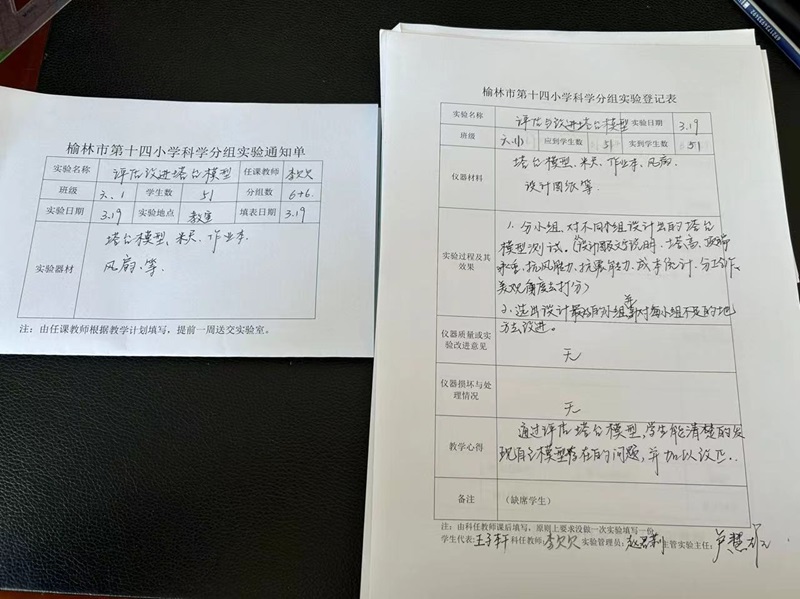 榆林市第十四小学科学分组实验通知单
实验名称 评估改进塔台模型 任课教师 李欠欠
班级 六、1 学生数 51 分组数 6+6
实验日期 3.19 实验地点 教室 填表日期 3.19
实验器材 塔台模型、米尺、作业本、
风扇、等
注:由任课教师根据教学计划填写,提前一周送交实验室。
榆林市第十四小学科学分组实验登记表
实验名称 评估与改进塔台模型 实验日期 3.19
班级 六.(1) 应到学生数 51 实到学生数 51
仪器材料 塔台模型、米尺、作业本、风扇、
设计图纸等
实验过程及其效果 1.分小组,对不同个组设计出的塔台
模型测试。(设计图文说明、塔高、顶端
承重、抗风能力、抗震能力、成本估计、分工合作、
美观角度去打分)
2.选出设计最好的小组,并对每小组不足的地
方去改进。
仪器质量或实验改进意见 无
仪器损坏与处理情况 无
教学心得 通过评估塔台模型,学生能清楚的发
现自己模型存在的问题,并加以改正.
备注 (缺席学生)
注:由科任教师课后填写,原则上要求没做一次实验填写一份。
学生代表:王子轩 科任教师:李欠欠 实验管理员: 主管实验主任: